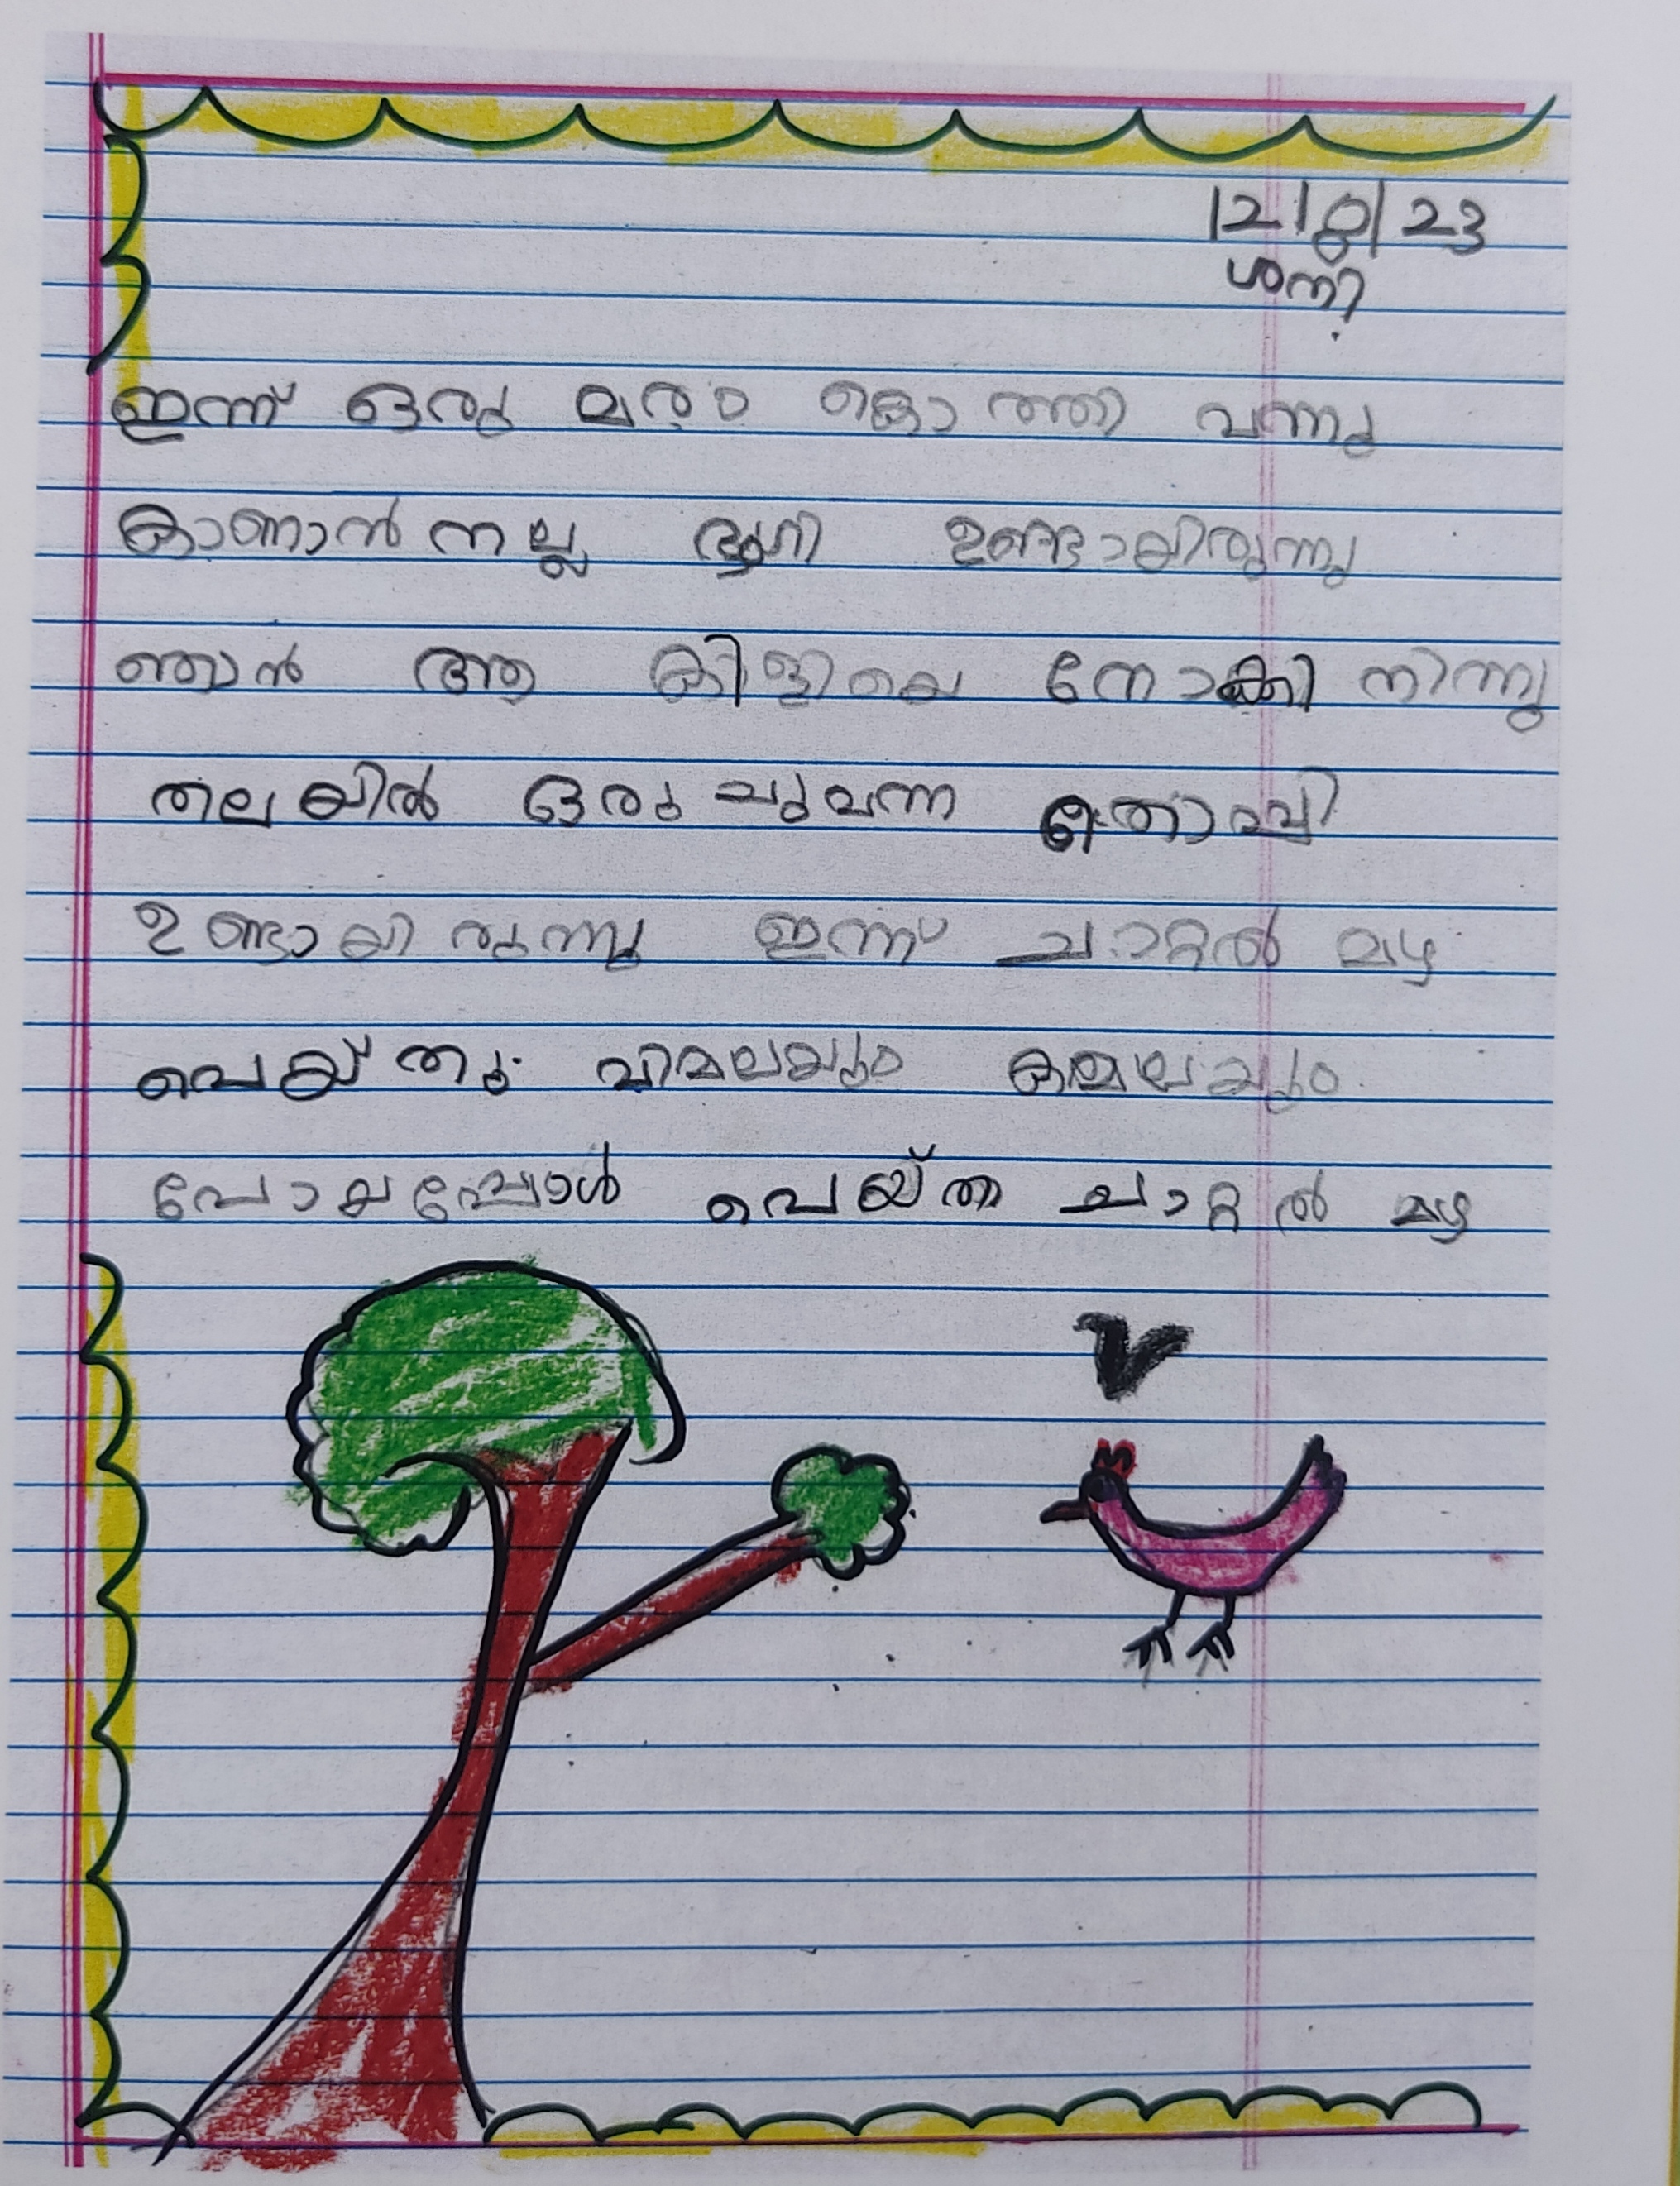 12/8/23
ശനി
ഇന്ന് ഒരു മരം കൊത്തി വന്നു
കാണാൻ നല്ല ഭംഗി ഉണ്ടായിരുന്നു
ഞാൻ ആ കിളിയെ നോക്കി നിന്നു
തലയിൽ ഒരു ചുവന്ന തൊപ്പി
ഉണ്ടായിരുന്നു ഇന്ന് ചാറ്റൽ മഴ
പെയ്തു വിമലയും കമലയും
പോയപ്പോൾ പെയ്ത ചാറ്റൽ മഴ